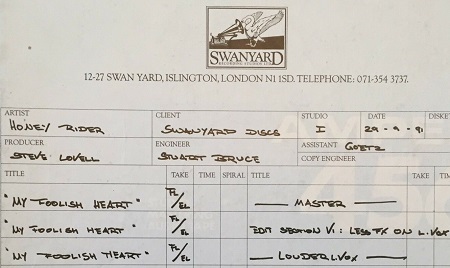 SWANYARD
RECORDING STUDIOS LTD
12-27 SWAN YARD, ISLINGTON, LONDON N1 1SD. TELEPHONE: 071-354 3737.
ARTIST CLIENT STUDIO DATE DISKE
HONEY RIDER SWANYARD DISCS I 29-9-91
PRODUCER ENGINEER ASSISTANT GOETZ
STEVE LOVELL STUART BRUCE COPY ENGINEER
TITLE TAKE TIME SPIRAL TITLE TAKE TIM
"MY FOOLISH HEART" FL/EL MASTER
"MY FOOLISH HEART" FL/EL EDIT SECTION V1: LESS FX ON L.VOX
"MY FOOLISH HEART" FL/EL LOUDER LVOX